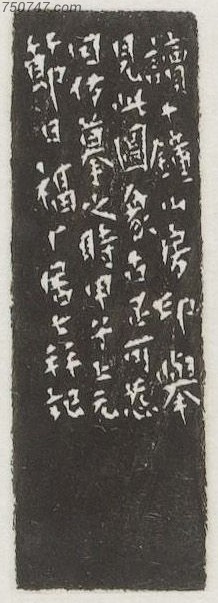 750747.com
讀十鐘山房印舉
見此圖象古可
因仿摹之時甲子上元
節日福厂居士記